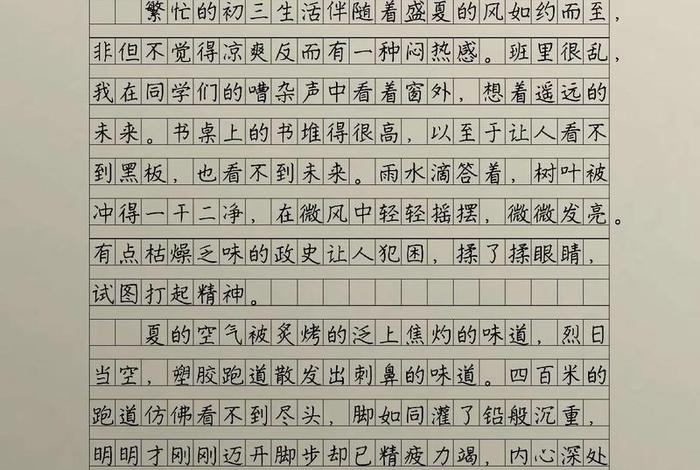 繁忙的初三生活伴随着盛夏的风如约而至,
非但不觉得凉爽反而有一种闷热感。班里很乱,
我在同学们的嘈杂声中看着窗外,想着遥远的
未来。书桌上的书堆得很高,以至于让人看不
到黑板,也看不到未来。雨水滴答着,树叶被
冲得一干二净,在微风中轻轻摇摆,微微发亮。
有点枯燥乏味的政史让人犯困,揉了揉眼睛,
试图打起精神。
夏的空气被炙烤的泛上焦灼的味道,烈日
当空,塑胶跑道散发出刺鼻的味道。四百米的
跑道仿佛看不到尽头,脚如同灌了铅般沉重,
明明才刚刚迈开脚步却已精疲力竭,内心深处